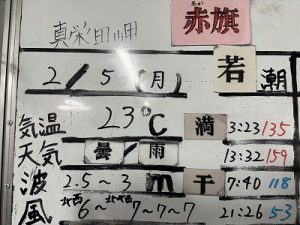 真栄田岬
あか
赤旗
2/5(月) 若潮
気温 23℃ 満 3:23 135
天気 曇/雨 13:32 159
波 2.5~3m 干 7:40 118
風 北西6~北北西7~7~7 21:26 53